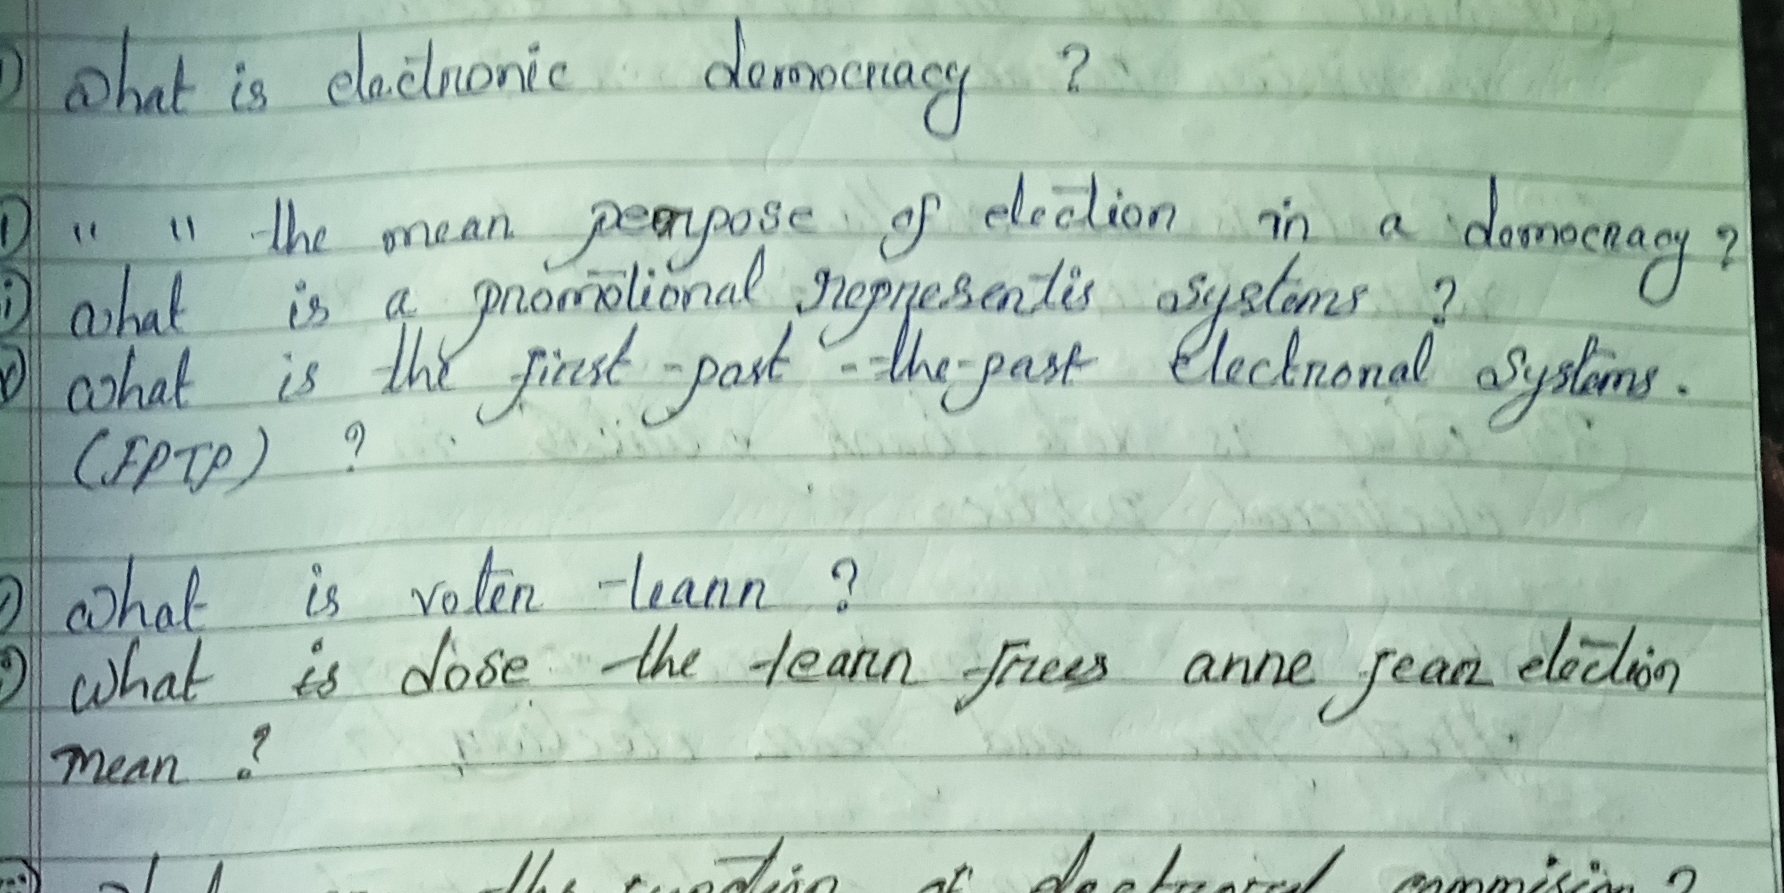 What is electronic democracy ?
" " the mean perpose of election in a democracy ?
What is a promotional representis systems ?
What is the first-past-the-past electronal systems.
(FPTP) ?
What is voter -leann ?
What is dose the teann frees anne fear election
mean ?
the function of electronal commision ?